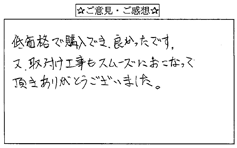 ☆ご意見・ご感想☆
低価格で購入でき、良かったです。
又、取付け工事もスムーズにおこなって
頂きありがとうございました。